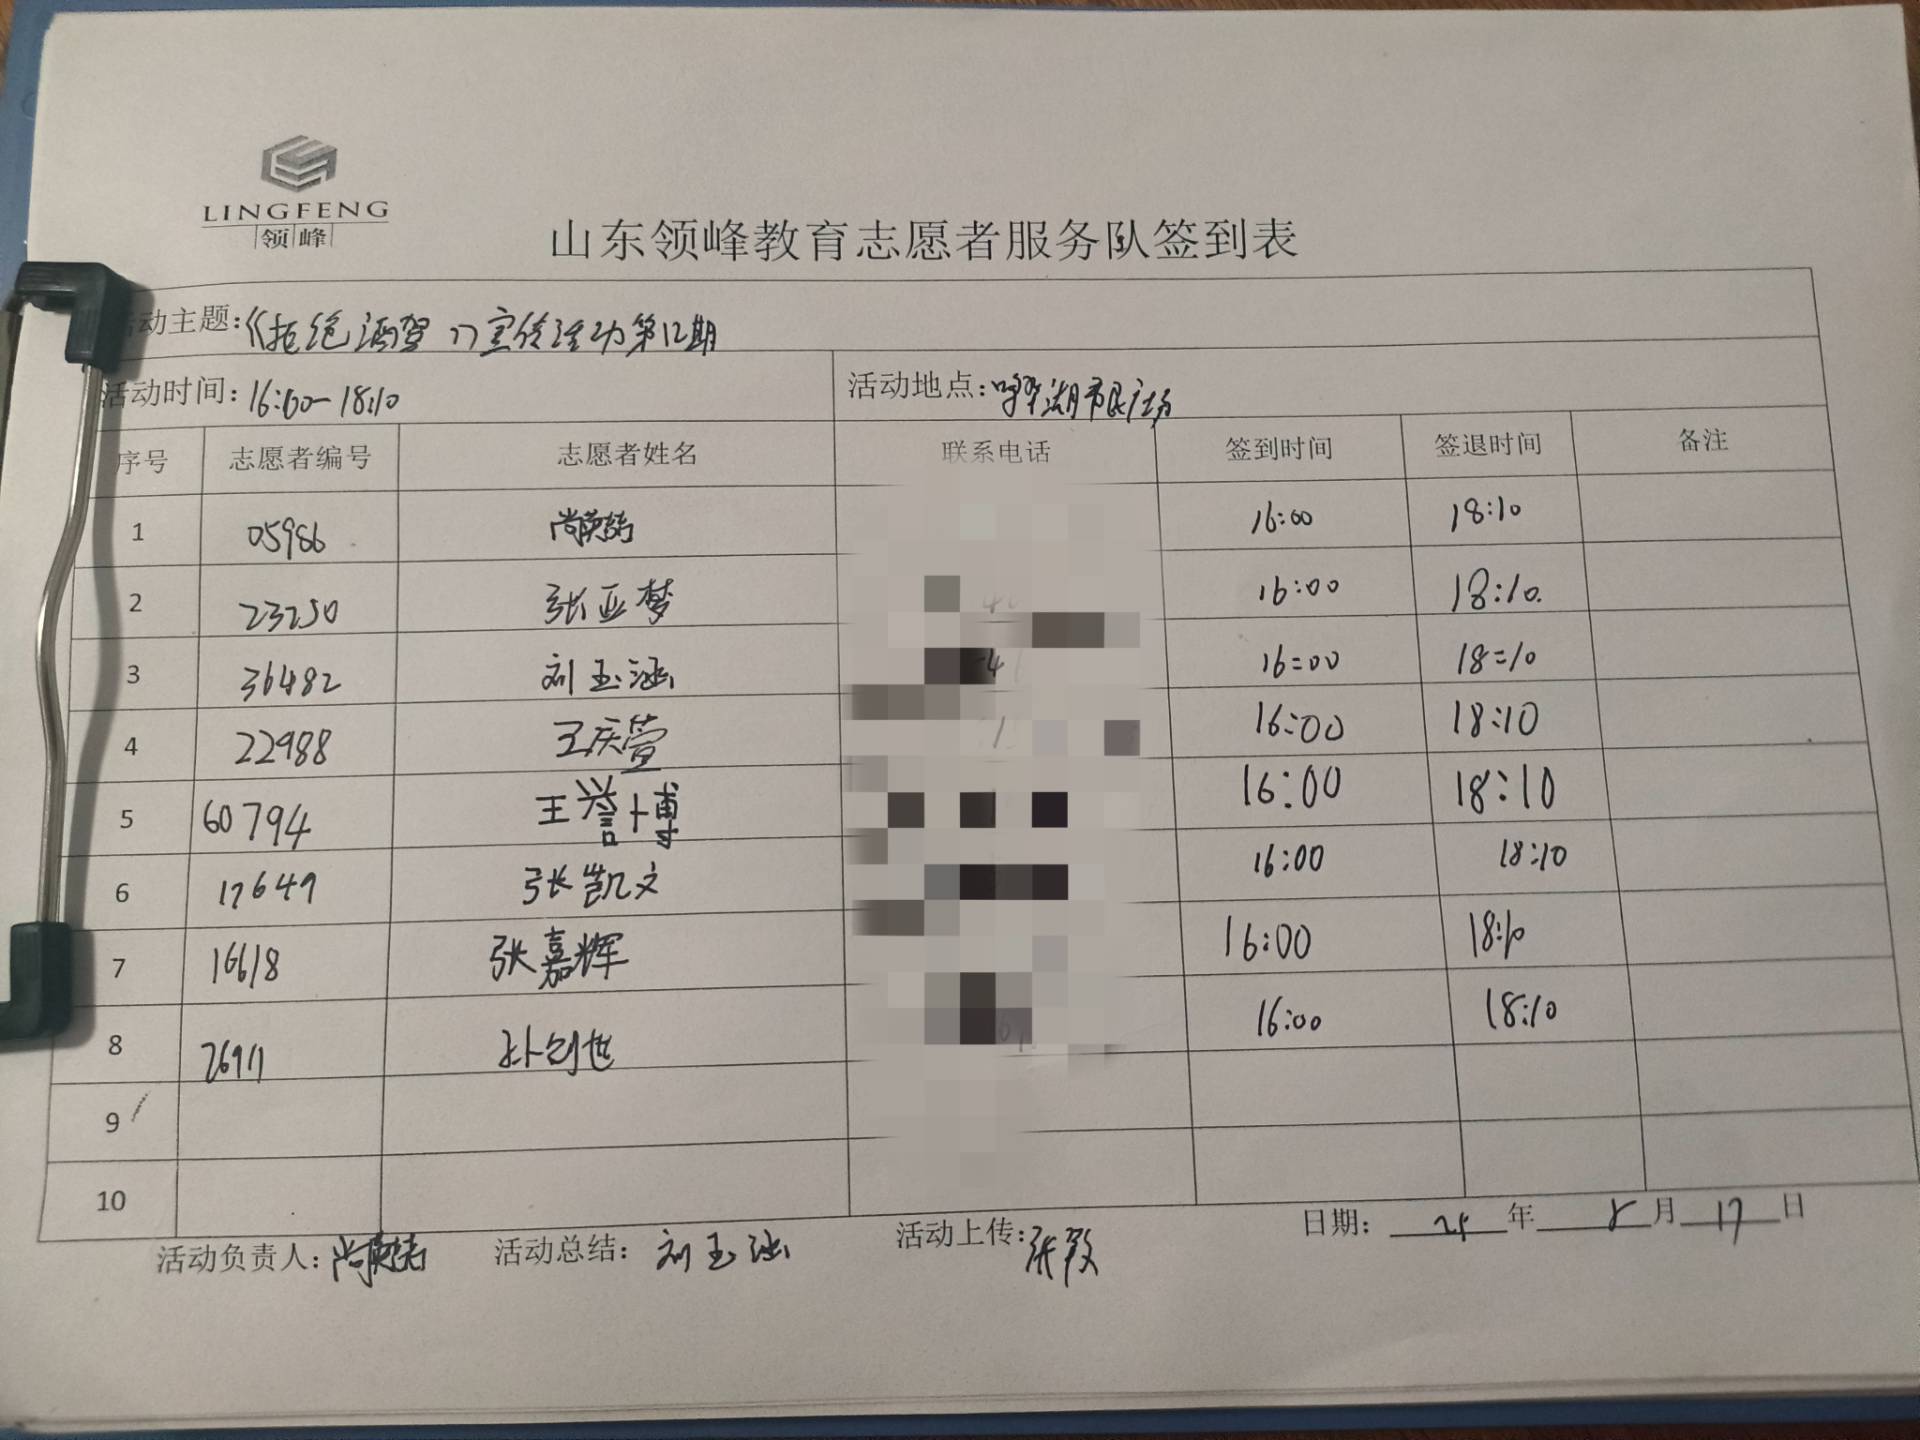 LINGFENG
领峰
山东领峰教育志愿者服务队签到表
活动主题:《拒绝酒驾》宣传活动第12期
活动时间:16:00-18:10 活动地点:湖市民广场
序号 志愿者编号 志愿者姓名 联系电话 签到时间 签退时间 备注
1 05986 尚 16:00 18:10
2 23250 张亚梦 16:00 18:10.
3 36482 刘玉涵 16:00 18:10
4 22988 王庆萱 16:00 18:10
5 60794 王誉博 16:00 18:10
6 17649 张凯文 16:00 18:10
7 16618 张嘉辉 16:00 18:10
8 26911 16:00 18:10
9
10
活动负责人:尚 活动总结:刘玉涵 活动上传:张 日期: 年 8 月 17 日